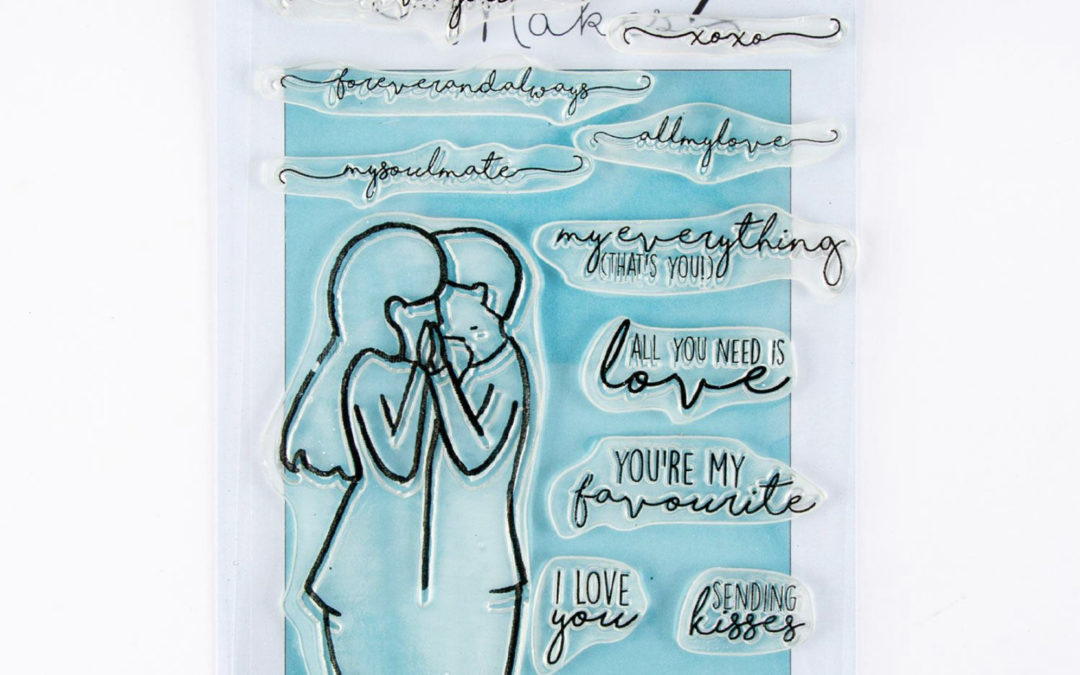 Mak
xoxo
foreverandalways
allmylove
mysoulmate
myeverything
(THAT'S YOU!)
ALL YOU NEED IS
love
YOU'RE MY
favourite
I LOVE
you
SENDING
kisses